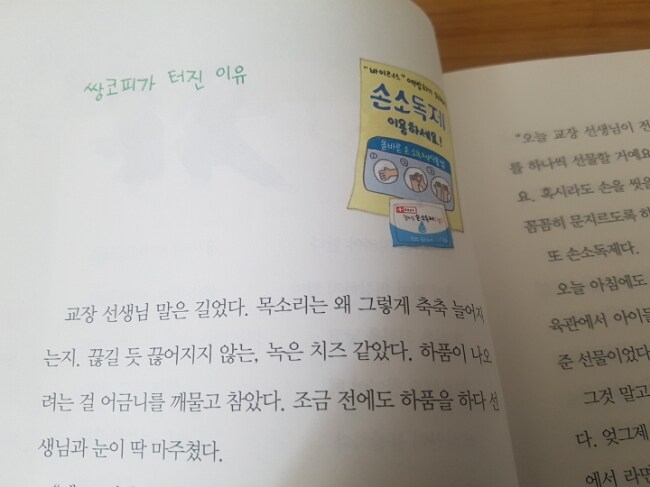 쌍코피가 터진 이유
"바이러스" 예방하기 위해
손소독제
이용하세요!
교장 선생님 말은 길었다. 목소리는 왜 그렇게 축축 늘어지
는지. 끊길 듯 끊어지지 않는, 녹은 치즈 같았다. 하품이 나오
려는 걸 어금니를 깨물고 참았다. 조금 전에도 하품을 하다 선
생님과 눈이 딱 마주쳤다.
"오늘 교장 선생님이 전
를 하나씩 선물할 거예요
요. 혹시라도 손을 씻을
꼼꼼히 문지르도록 하
또 손소독제다.
오늘 아침에도
육관에서 아이들
준 선물이었다
그것 말고
다. 엊그제
에서 라면